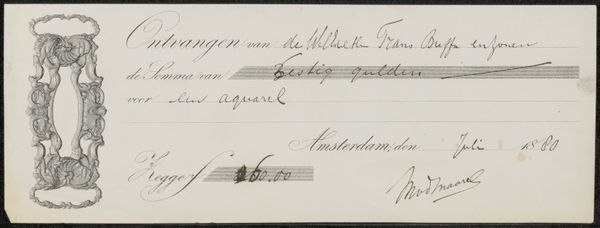 Ontvangen van de WelEd. Hn Frans Buffa en zonen
de Somma van Zestig gulden
voor een aquarel
Amsterdam, den Juli 1880
Zegge f 60.00